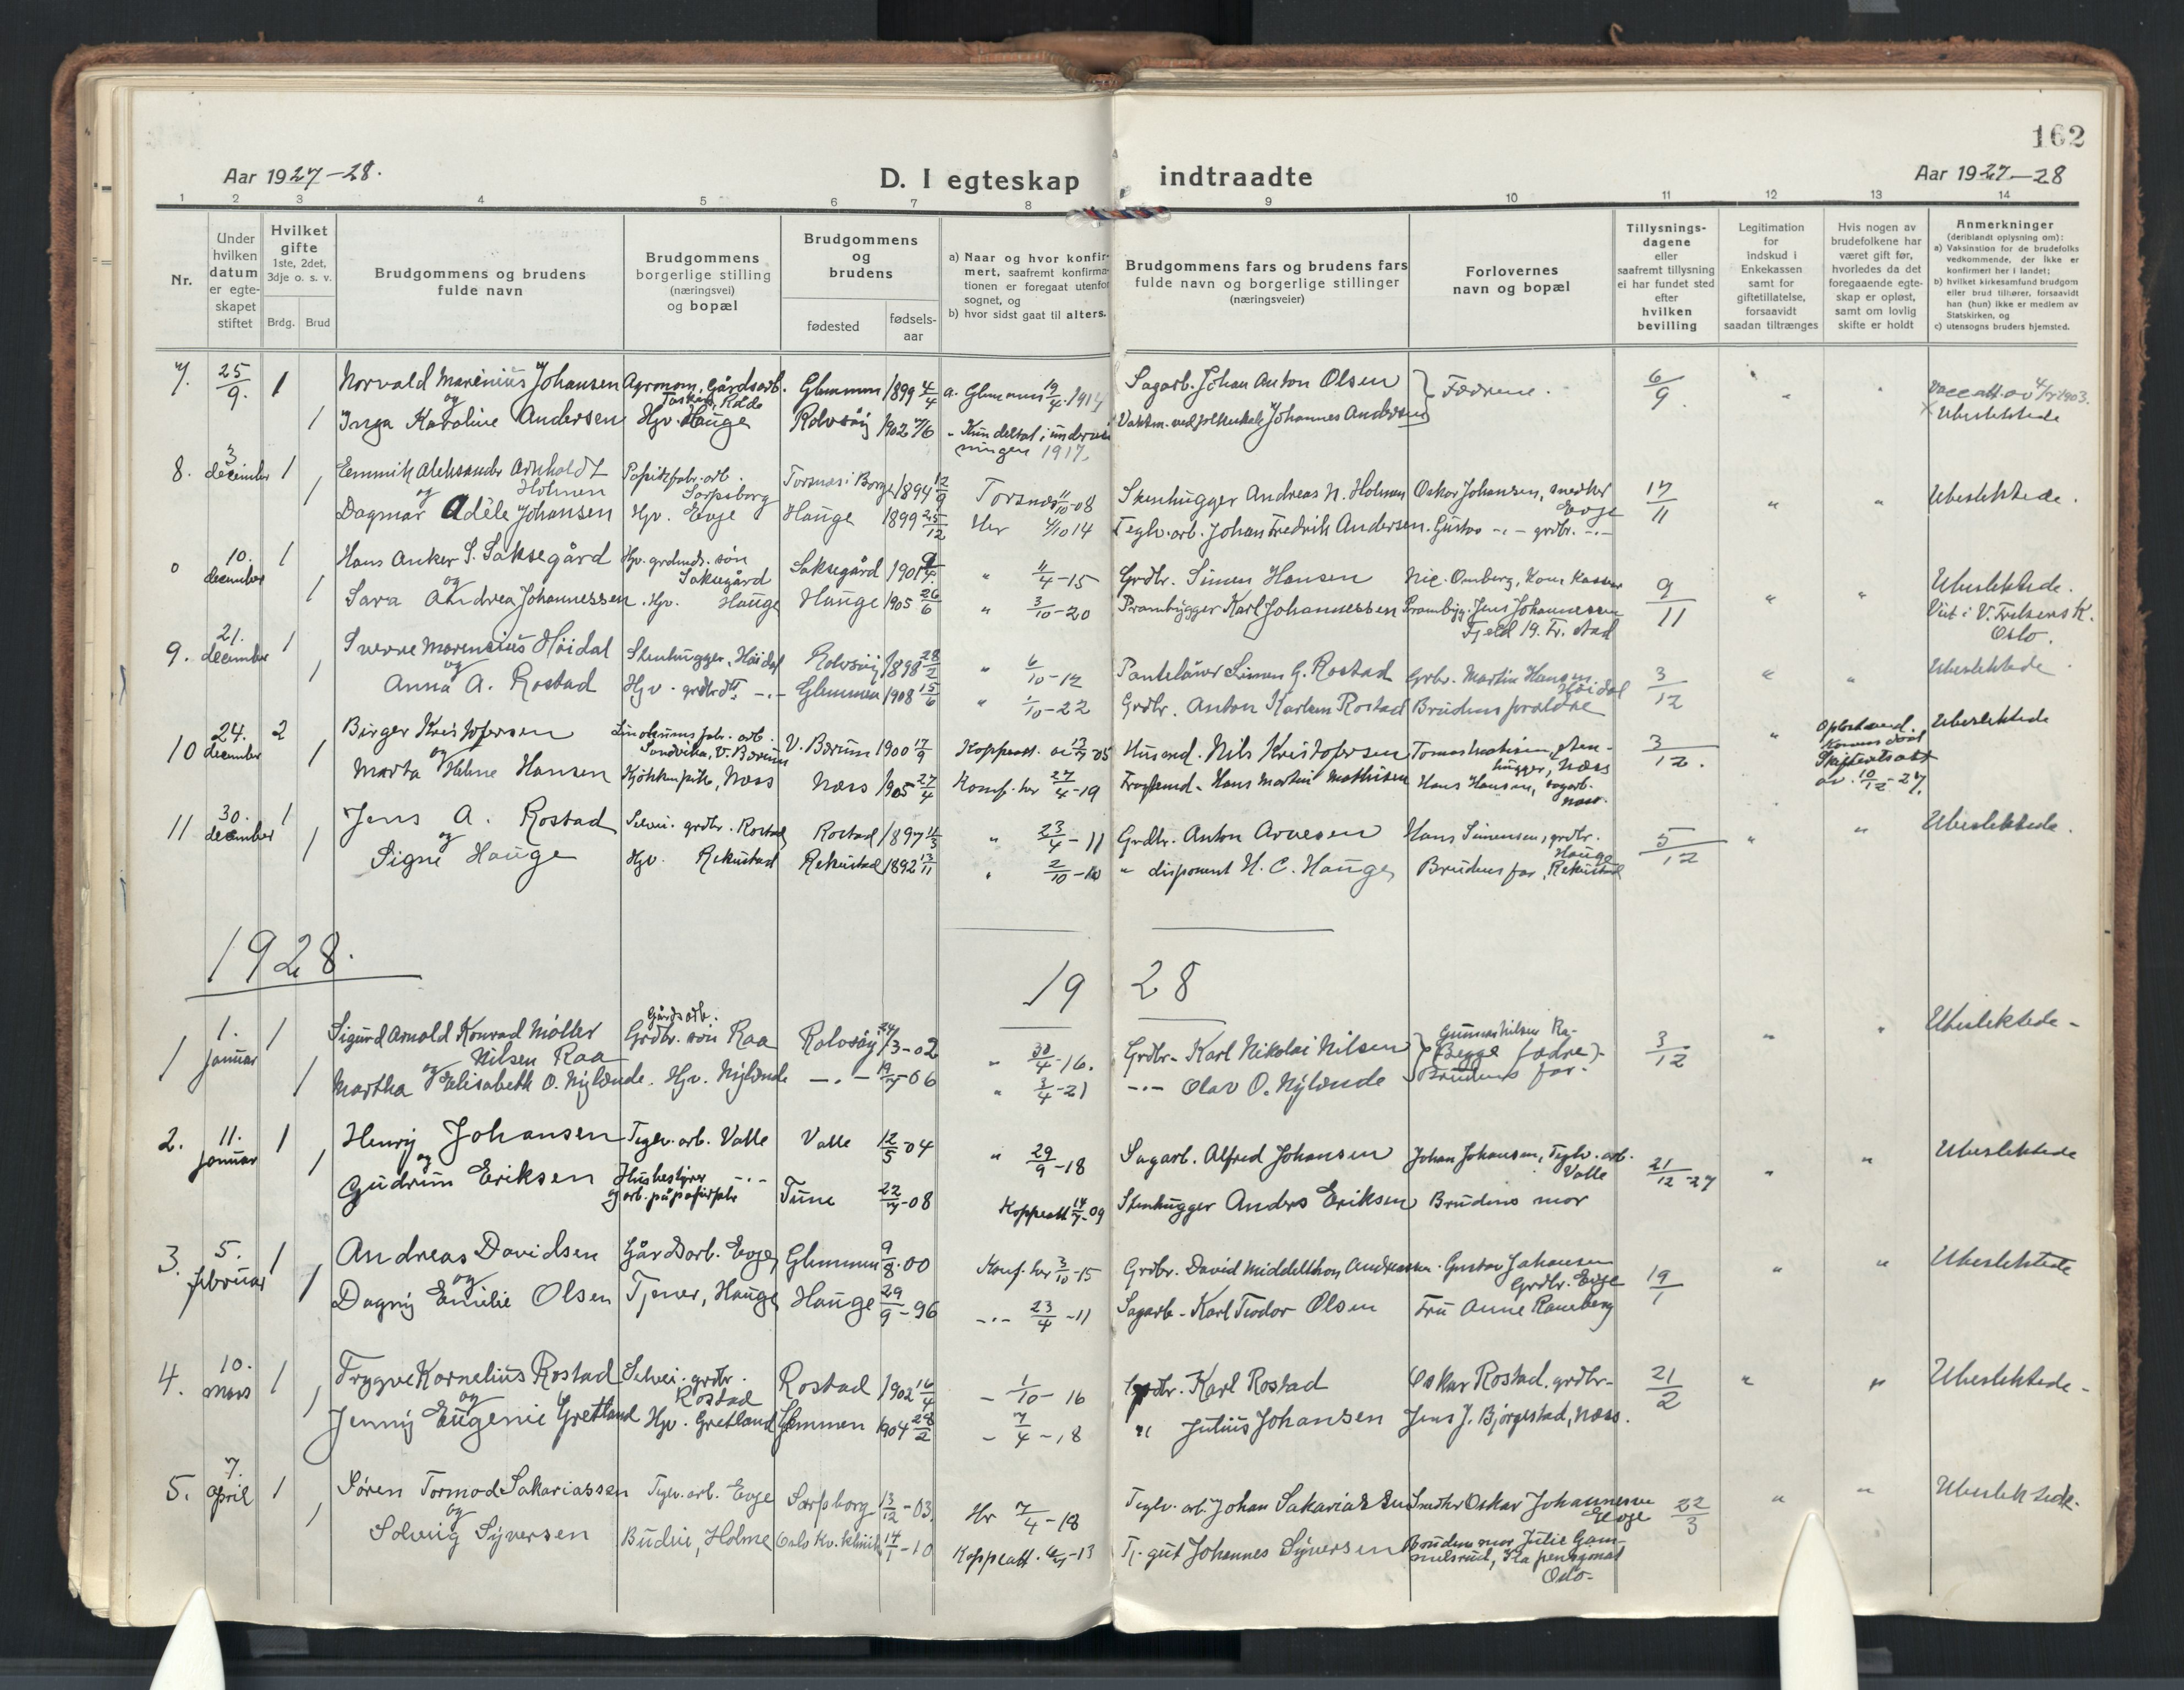 162
Aar 1927-28.
D. I egteskap indtraadte
Aar 1927-28
1 2 3 4 5 6 7 8 9 10 11 12 13 14
Nr.
Under hvilken datum er egte-skapet stiftet
Hvilket gifte 1ste, 2det, 3dje o. s. v.
Brdg. Brud
Brudgommens og brudens fulde navn
Brudgommens borgerlige stilling (næringsvei) og bopæl
Brudgommens og brudens
fødested
fødsels-aar
a) Naar og hvor konfir-mert, saafremt konfirma-tionen er foregaat utenfor sognet, og
b) hvor sidst gaat til alters.
Brudgommens fars og brudens fars fulde navn og borgerlige stillinger (næringsveier)
Forlovernes navn og bopæl
Tillysnings-dagene eller saafremt tillysning ei har fundet sted efter hvilken bevilling
Legitimation for Indskud i Enkekassen samt for giftetillatelse, forsaavidt saadan tiltrænges
Hvis nogen av brudefolkene har været gift før, hvorledes da det foregaaende egte-skap er opløst, samt om lovlig skifte er holdt
Anmerkninger (deriblandt oplysning om):
a) Vaksination for de brudefolks vedkommende, der ikke er konfirmert her i landet;
b) hvilket kirkesamfund brudgom eller brud tilhører, forsaavidt han (hun) ikke er medlem av Statskirken, og
c) utensogns bruders hjemsted.
7. 25/9. 1 Norvald Marenius Johansen Agronom, Gårdsarb. Råde Glemmen 1899 4/4 a. Glemmen 19/4 1914 Sagarb. Johan Anton Olsen } Fædrene. 6/9
og
1 Inga Karoline Andersen Hjv. Hauge Rolvsøy 1902 Kun deltat i undervisningen 1917. Johannes Andersen Ubeslektede
8. 3 december 1 Aleksander Arnholdt Holmen Sarpsborg Torsnæs i Borge 1894 12/9 Torsnæs 11/10-08 Stenhugger Andreas N. Holmen Oskar Johansen, snedker Evje 17/11 " " Ubeslektede.
og
1 Dagmar Adéle Johansen Hjv. Evje Hauge 1899 25/12 Her 4/10 14 Teglv. arb. Johan Fredrik Andersen. Gustav -"- grdbr. -"-
0 10. december 1 Hans Anker S. Saksegård Hjv. grdmds. søn Saksegård Saksegård 1901 " 11/4-15 Grdbr. Simen Hansen Nic. Omberg, Kom. kasser 9/11 " " Ubeslektede.
og
1 Sara Andrea Johannessen. Hjv. Hauge Hauge 1905 26/6 " 3/10-20 Prambygger Karl Johannessen Prambyg. Jens Johannessen Fjeld 19. Fr. stad Viet i V. Frelsers K. Oslo.
9. 21. december 1 Sverre Marensius Høidal Stenhugger, Høidal Rolvsøy 1898 28/2 " 6/10-12 Simen G. Rostad Grbr. Martin Hansen Høidal 3/12 " " Ubeslektede.
og
1 Anna A. Rostad Hjv. grdbrdtr. -"- Glemmen 1908 15/6 " 1/10-22 Grdbr. Anton Karlsen Rostad Brudens forældre
10 24. december 2 Birger Kristofersen Linoleums fabr. arb. Sandvika, V. Bærum V. Bærum 1900 17/9 Koppeatt. av 05 Husmd. Nils Kristofersen Tomas Mathisen, sten-hugger, Næss 3/12. " Skifteatst av. 10/12-27. Ubeslektede
og
1 Marta Helene Hansen Kjøkkenpike, Næss Næss 1905 27/4 Konf. her 27/4-19 Hans Martin Mathisen Hans Hansen, sagarb. Næss.
11 30. december 1 Jens A. Rostad Selvei. grdbr. Rostad Rostad 1897 11/3 " 23/4-11 Grdbr. Anton Arnesen Hans Simensen, grdbr. Hauge 5/12 " " Ubeslektede.
og
1 Signe Hauge Hjv. Rekustad Rekustad 1892 13/11 " 2/10- " disponent H. C. Hauge Brudens far, Rekustad
1928.
19 28
1 1. januar 1 Sigurd Arnold Konrad Møller Nilsen Raa Gårdsarb. Grdbr. søn Raa Rolvsøy 24/3-02 " 30/4-16. Grdbr. Karl Nikolai Nilsen } Gunnar Nilsen Ra- (Begge fædre)- 3/12 " " Ubeslektede-
og
1 Martha Elisabeth O. Nylænde. Hjv. Nylænde -"- 19/7-06 " 3/4-21 -"- Olav O. Nylænde Brudens far.
2. 11. januar 1 Henry Johansen Teglv. arb. Valle Valle 12/5-04 " 29/9-18 Sagarb. Alfred Johansen Johan Johansen, Teglv. arb. Valle 21/12-27 " " Ubeslektede
og
1 Gudrun Eriksen Husbestyrer -"- og arb. på papirfabr. Tune 22/7-08 Koppeatt 14/7-09 Stenhugger Anders Eriksen Brudens mor
3. 5. februar 1 Andreas Davidsen Gårdsarb. Evje Glemmen 9/8-00 Konf. her 3/10-15 Grdbr. David Middelthon Andreassen. Gustav Johansen Grdbr. Evje 19/1 " " Ubeslektede
og
1 Dagny Emilie Olsen Tjener, Hauge Hauge 29/9-96 -"- 23/4-11 Sagarb. Karl Teodor Olsen Fru Anne Ramberg
4. 10. mars 1 Trygve Kornelius Rostad Selvei. grdbr. Rostad Rostad 1902 16/4 - 1/10-16 Grdbr. Karl Rostad Oskar Rostad. grdbr- 21/2 " " Ubeslektede-
og
1 Jenny Eugenie Grettland Hjv. Gretland Glemmen 1904 28/2 - 7/4-18 " Julius Johansen Jens J. Bjørgestad, Næss.
5. 7. april 1 Søren Tormod Sakariassen Teglv. arb. Evje Sarpsborg 13/12-03. Her 7/4-18 Teglv. arb. Johan Sakariassen Snedker Oskar Johannesen Evje 22/3 " " Ubeslektede.
og
1 Solveig Syversen Budeie, Holme Oslo Kv. klinik 14/1-10 Koppeatt. -13 Tj. gut Johannes Syversen Brudens mor Julie Gam-melsrud, pensjonat Oslo-